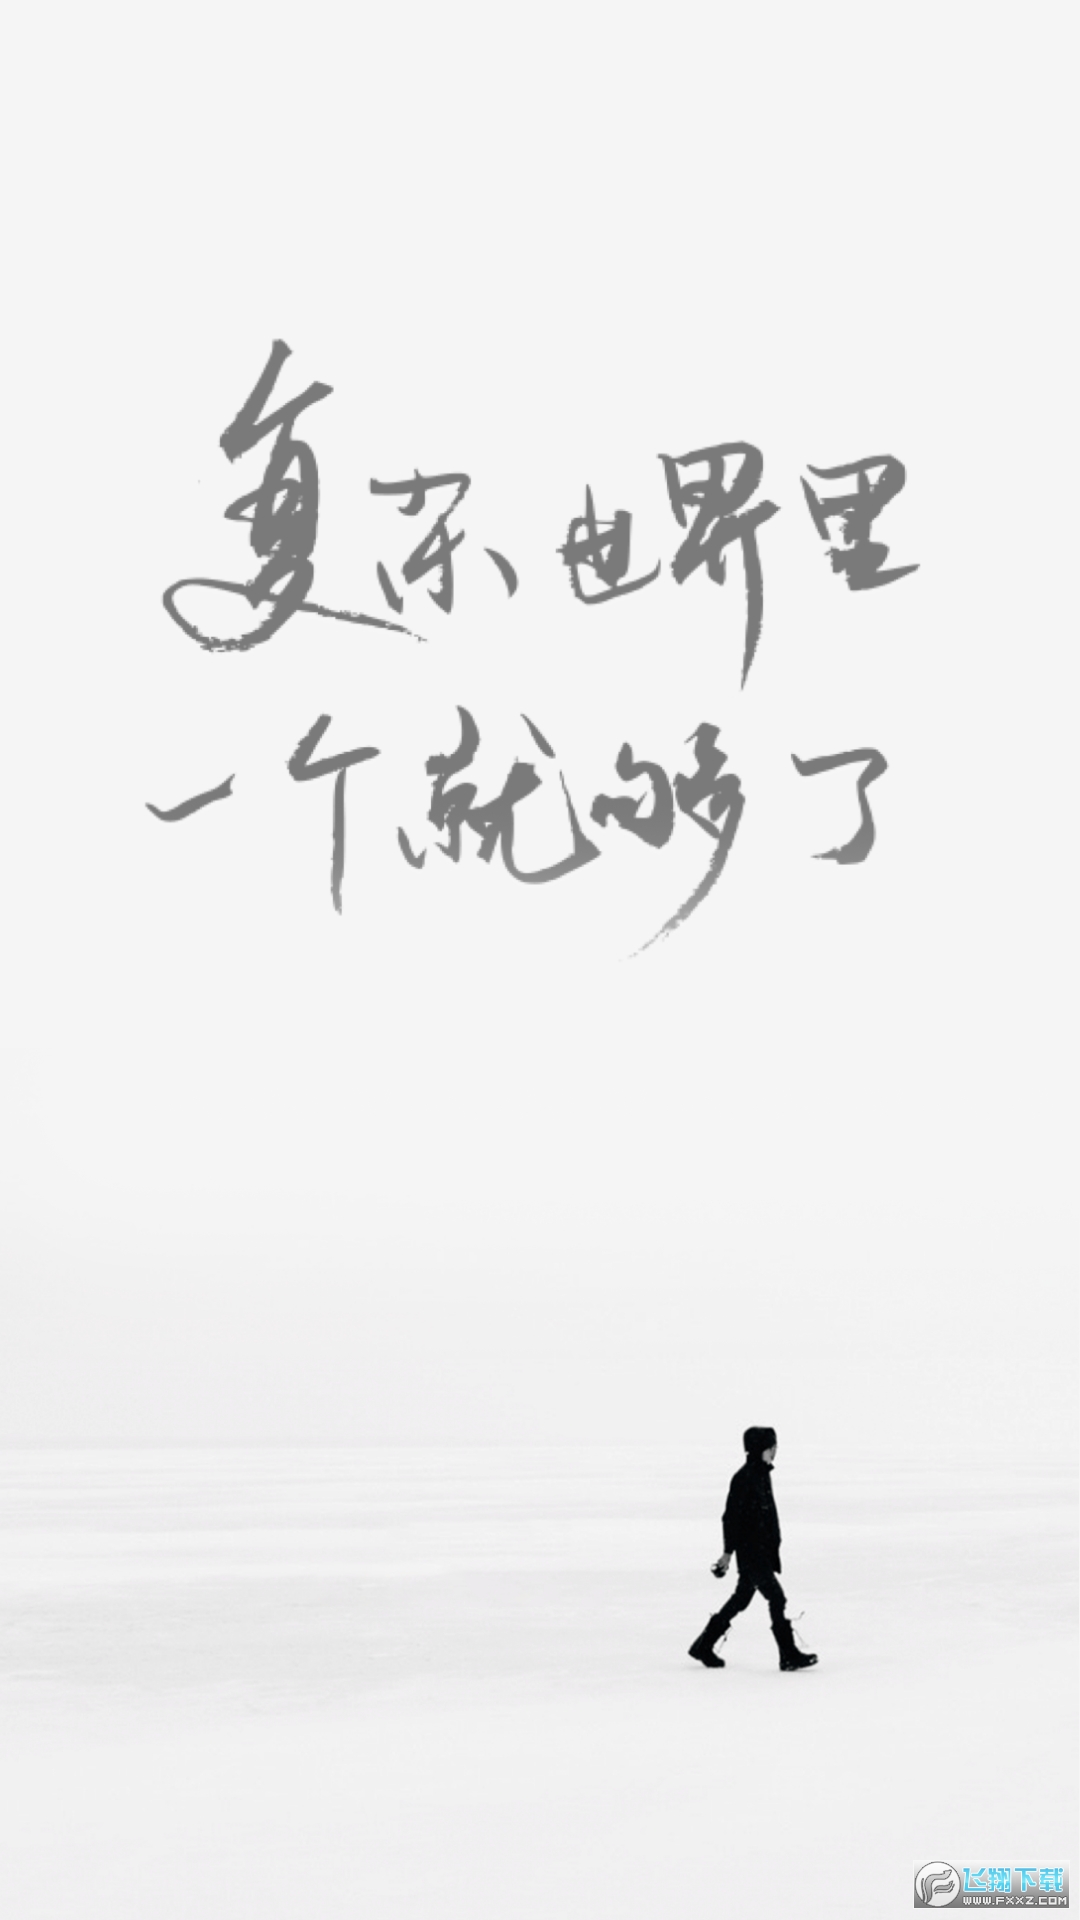 复杂世界里
一个就够了
飞翔下载
WWW.FXXZ.COM